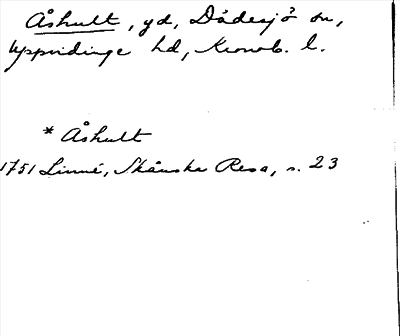 Åshult, yd, Dädesjö sn,
Uppvidinge hd, Kronob. l.
* Åshult
1751 Linné, Skånska Resa, s. 23